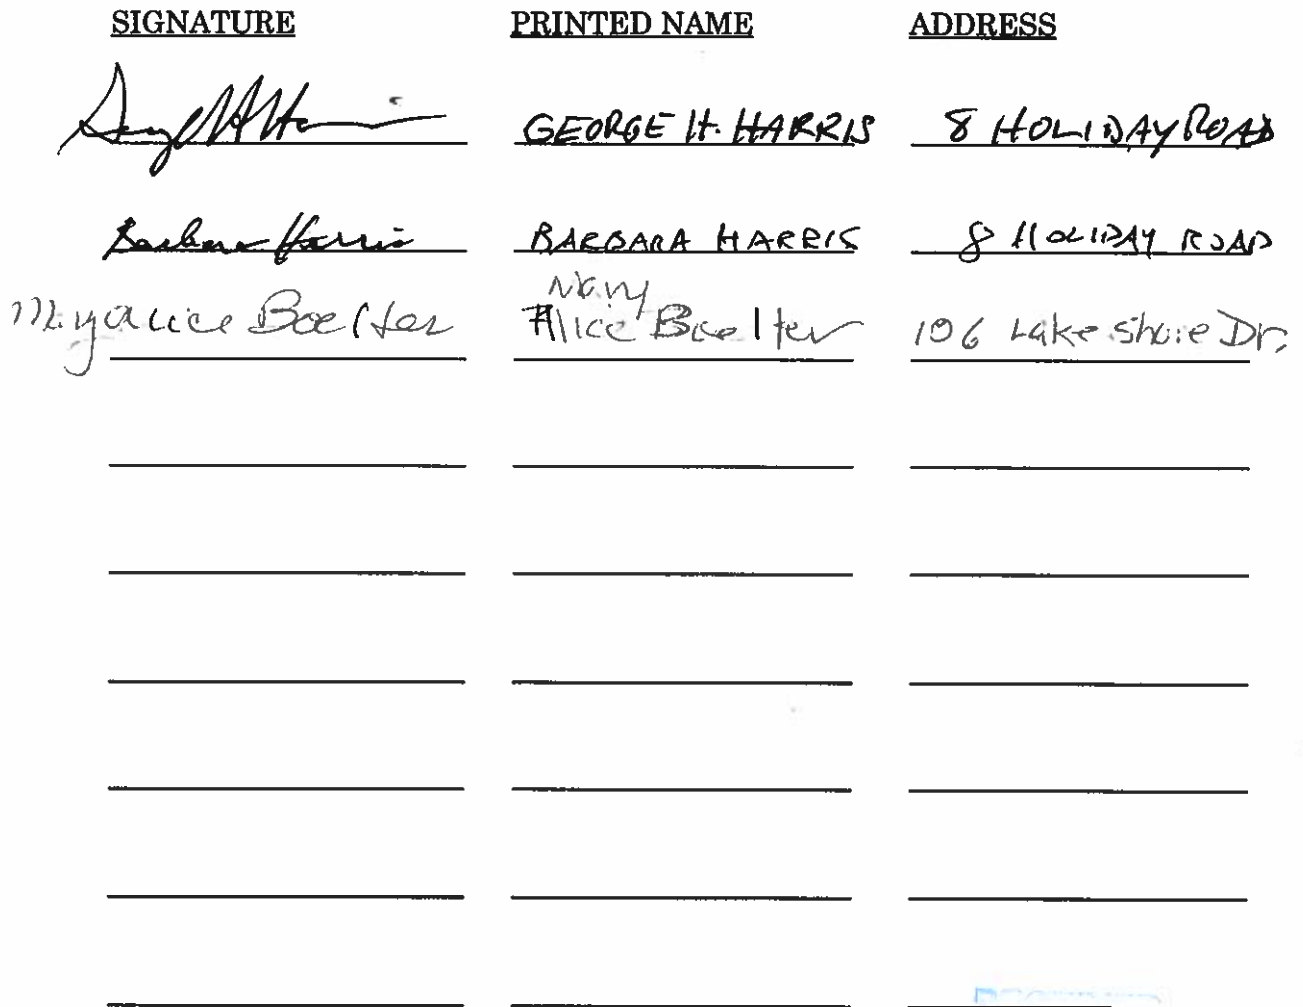 SIGNATURE PRINTED NAME ADDRESS
George H Harris GEORGE H. HARRIS 8 HOLIDAY ROAD
Barbara Harris BARBARA HARRIS 8 HOLIDAY ROAD
Mary
Mary Alice Boelter Alice Boelter 106 Lake Shore Dr.